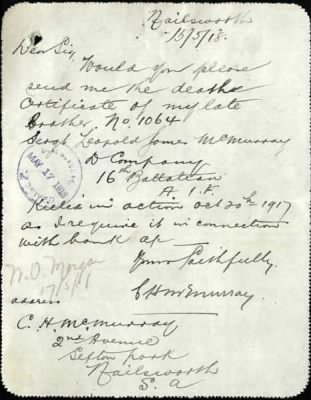 Nailsworth
15/5/18.
Dear Sir,
Would you please
send me the death
Certificate of my late
Brother, No. 1064
Sergt Leopold James McMurray
D Company
16th Battalion
A.I.F.
Killed in action Oct 20th 1917
as I require it in connection
with bank a/c
MAY 17 1918
Yours Faithfully.
C H McMurray.
W.O. Morgan
17/5/18
address
C. H. McMurray
2nd Avenue
Sefton Park
Nailsworth
S. A